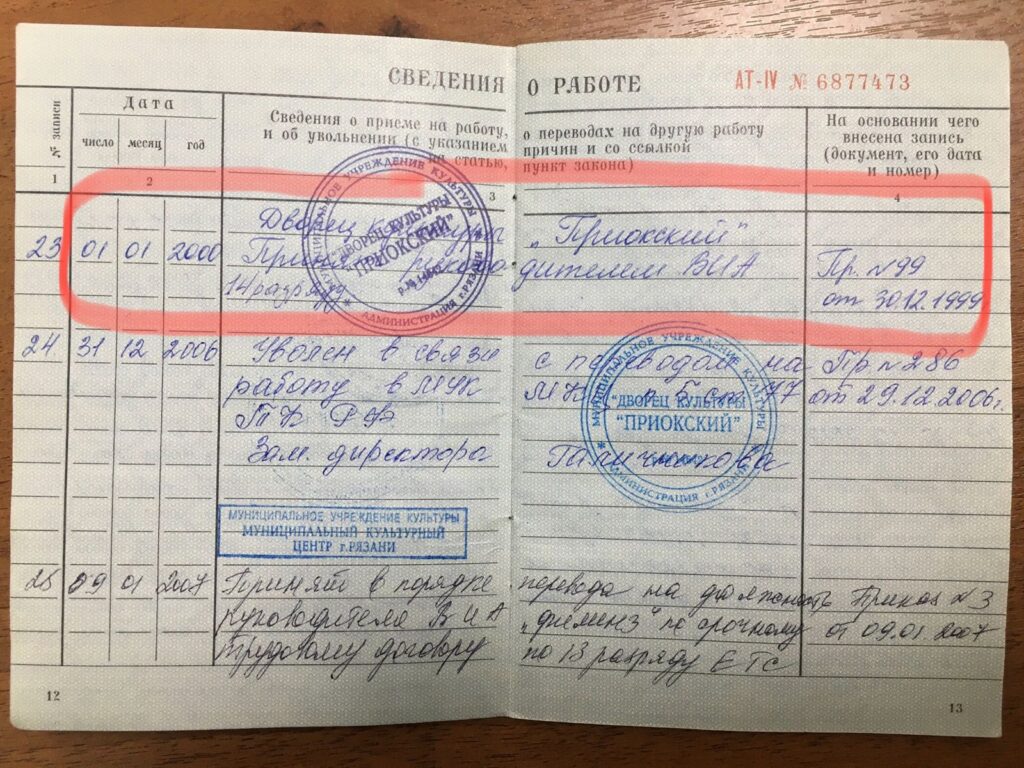 СВЕДЕНИЯ О РАБОТЕ
АТ-IV № 6877473
№ записи
Дата
число
месяц
год
Сведения о приеме на работу, о переводах на другую работу
и об увольнении (с указанием причин и со ссылкой
на статью, пункт закона)
На основании чего
внесена запись
(документ, его дата
и номер)
1
2
3
4
Дворец культуры „Приокский"
23 01 01 2000 Принят руководителем ВИА Пр. N 99
14 разряду от 30.12.1999
МУНИЦИПАЛЬНОЕ УЧРЕЖДЕНИЕ КУЛЬТУРЫ
"ДВОРЕЦ КУЛЬТУРЫ
ПРИОКСКИЙ"
АДМИНИСТРАЦИЯ г.РЯЗАНИ
24 31 12 2006 Уволен в связи с переводом на Пр. N 286
работу в МУК от 29.12.2006г.
ТК РФ
Зам. директора
МУНИЦИПАЛЬНОЕ УЧРЕЖДЕНИЕ КУЛЬТУРЫ
"ДВОРЕЦ КУЛЬТУРЫ
"ПРИОКСКИЙ"
АДМИНИСТРАЦИЯ г.РЯЗАНИ
МУНИЦИПАЛЬНОЕ УЧРЕЖДЕНИЕ КУЛЬТУРЫ
МУНИЦИПАЛЬНЫЙ КУЛЬТУРНЫЙ
ЦЕНТР г.РЯЗАНИ
25 09 01 2007 Принят в порядке перевода на должность Приказ N 3
руководителя ВИА по срочному от 09.01.2007
трудовому договору по 13 разряду ЕТС
12
13